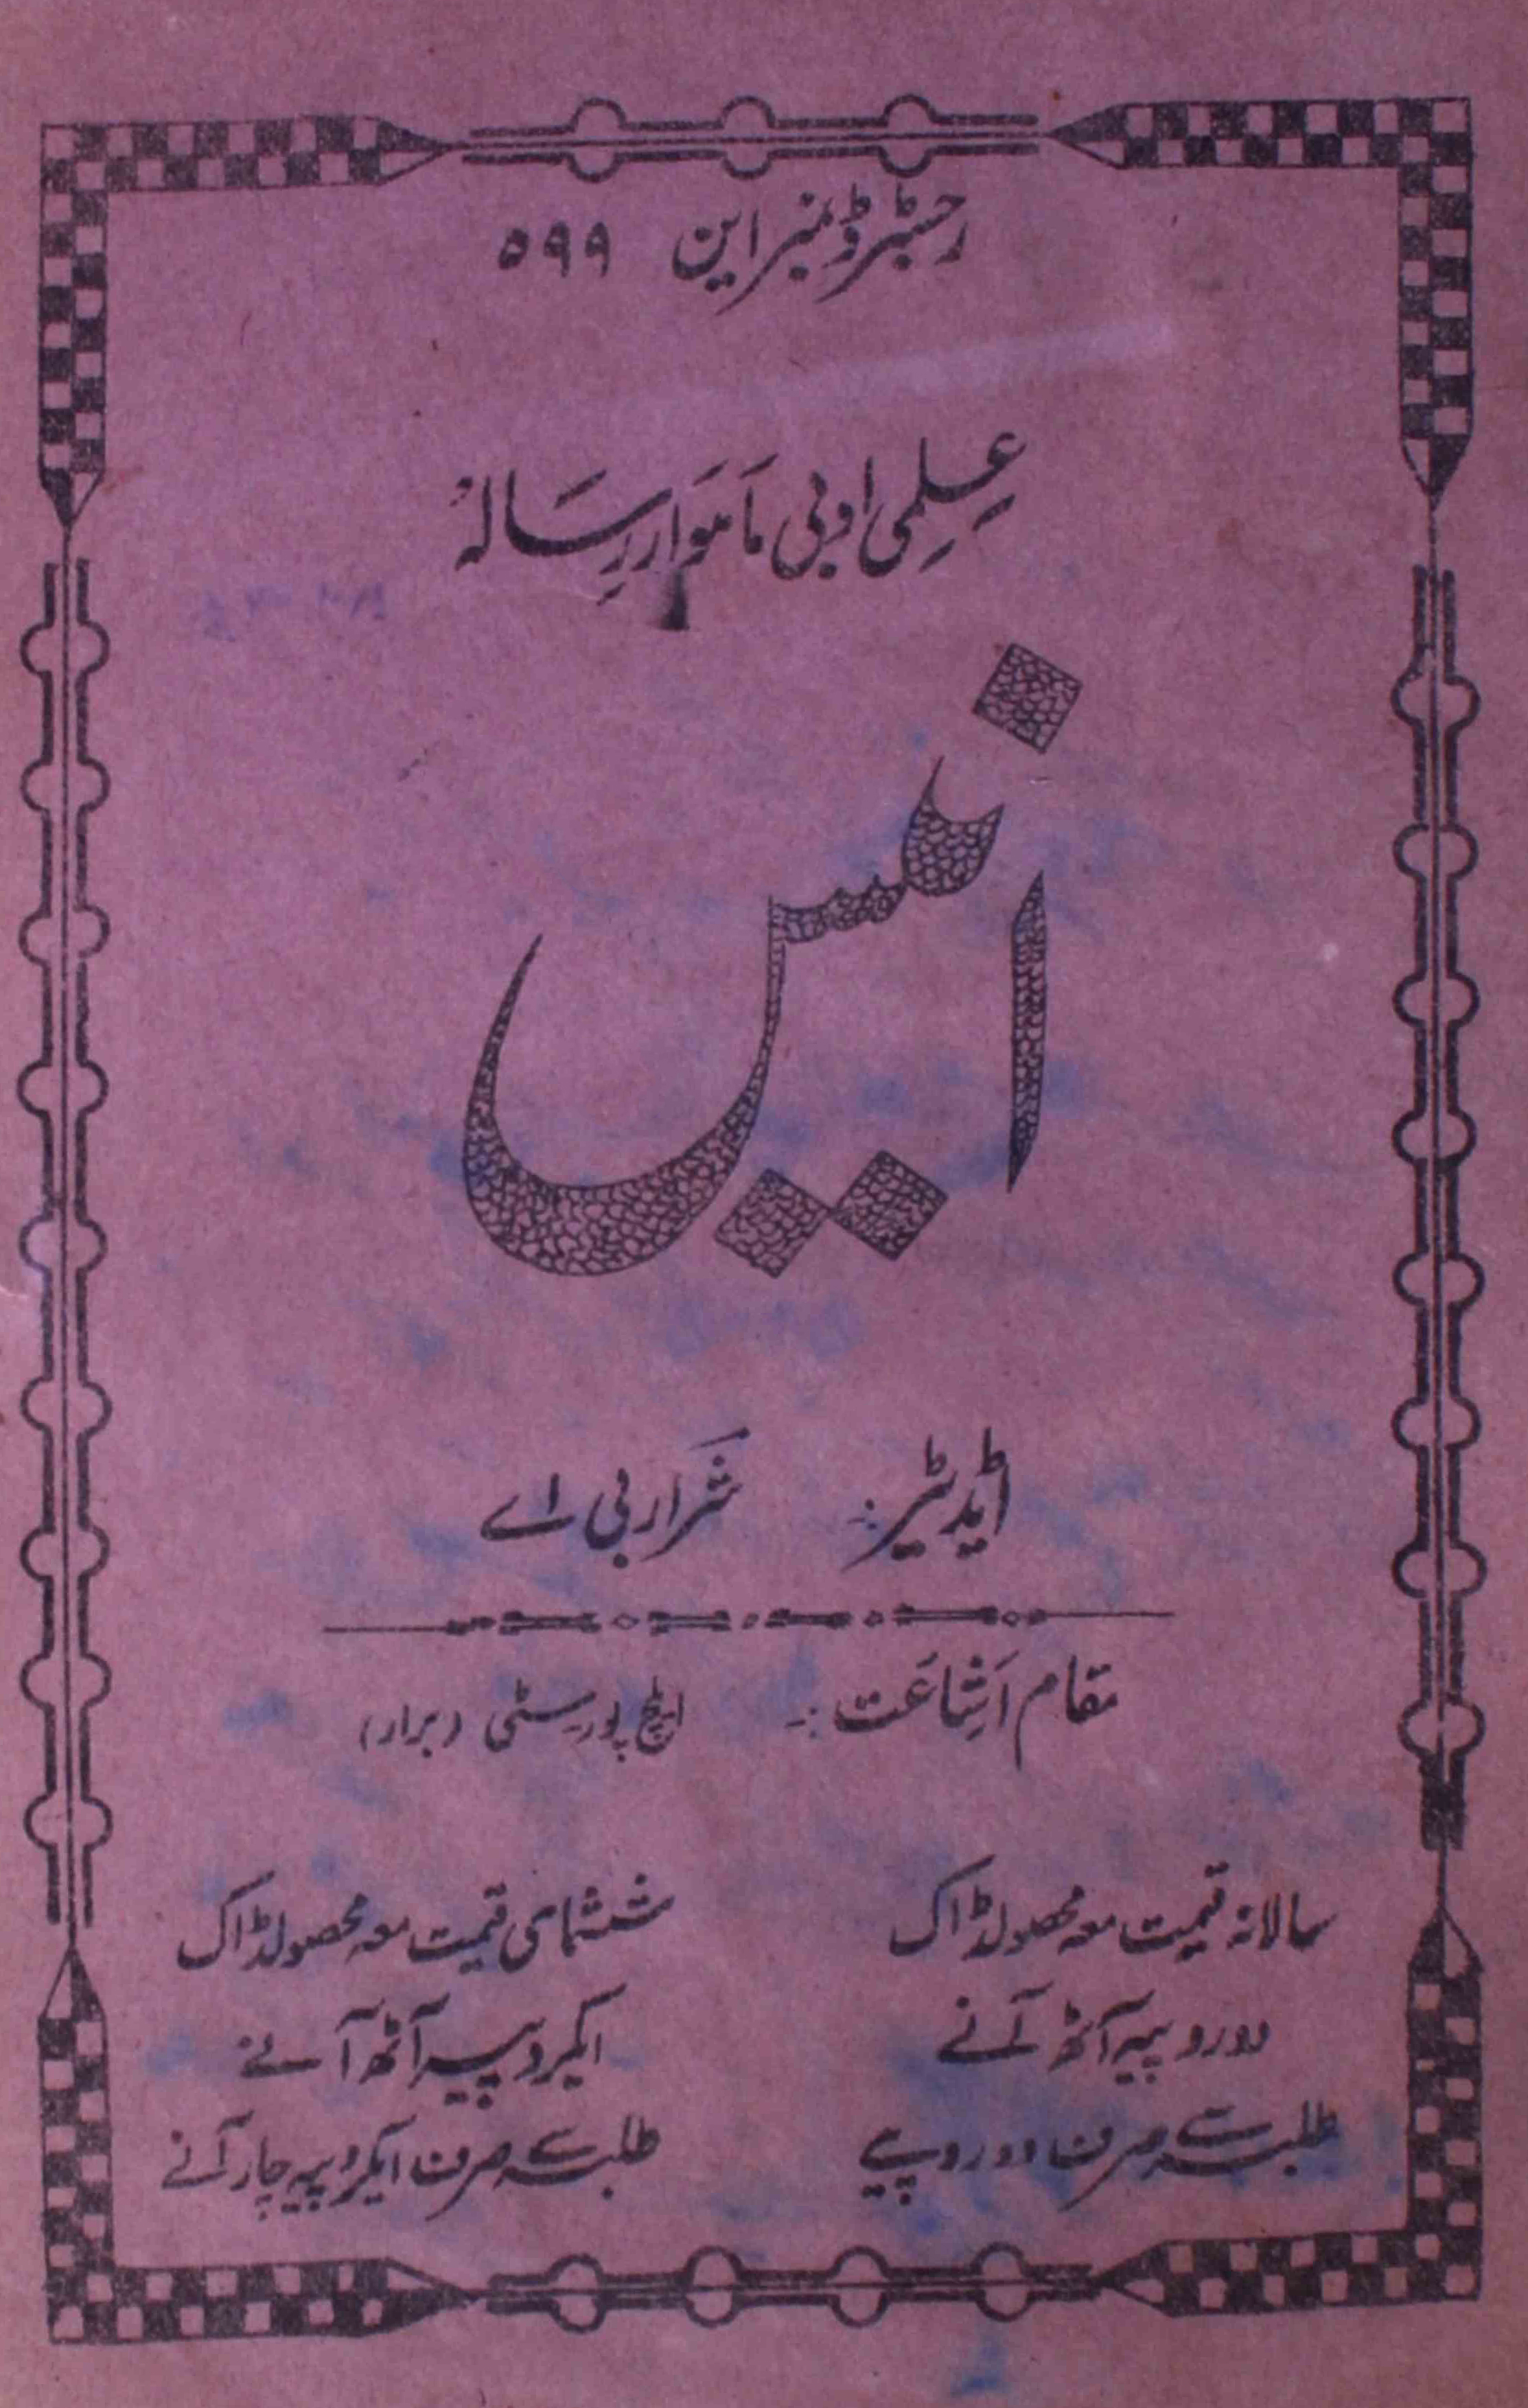 رجسٹرڈ نمبر این ۵۹۹
عِلمِی ادبی مَاہوَار رِسَالہ
انیس
ایڈیٹر:۔ شَرار بی اے
مقام اَشِاعَت:۔ ایلچ پور سٹی (برار)
سالانہ قیمت معہ محصولڈاک
دو روپیہ آٹھ آنے
طلبہ سے صرف دو روپیے
ششماہی قیمت معہ محصولڈاک
ایکروپیہ آٹھ آنے
طلبہ سے صرف ایکروپیہ چار آنے